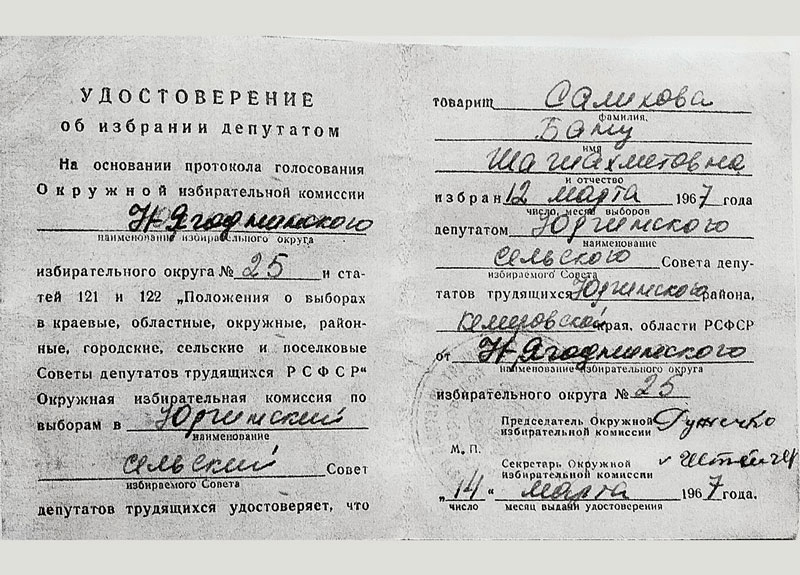 УДОСТОВЕРЕНИЕ
об избрании депутатом
На основании протокола голосования
Окружной избирательной комиссии
Н-Ягодминского
наименование избирательного округа
избирательного округа № 25 и ста-
тей 121 и 122 „Положения о выборах
в краевые, областные, окружные, район-
ные, городские, сельские и поселковые
Советы депутатов трудящихся РСФСР“
Окружная избирательная комиссия по
выборам в Юргинский
наименование
сельский Совет
избираемого Совета
депутатов трудящихся удостоверяет, что
товарищ Салихова
фамилия,
Бану
имя
Шагиахметовна
и отчество
избран 12 марта 1967 года
число, месяц выборов
депутатом Юргинского
наименование
сельского Совета депу-
избираемого Совета
татов трудящихся Юргинского района,
Кемеровской края, области РСФСР
от Н-Ягодминского
наименование избирательного округа
избирательного округа № 25
Председатель Окружной
избирательной комиссии
М. П.
Секретарь Окружной
избирательной комиссии
„14“ марта 1967 года.
число месяц выдачи удостоверения